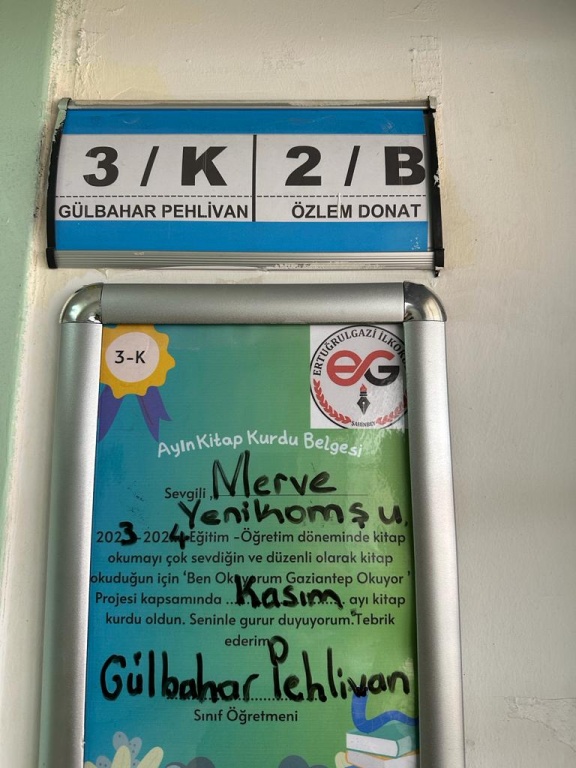 3 / K 2 / B
GÜLBAHAR PEHLİVAN ÖZLEM DONAT
3-K
ERTUĞRULGAZİ İLKOKU
eG
ŞAHİNBEY
Ayın Kitap Kurdu Belgesi
Sevgili, Merve
Yenikomşu
2023-2024 Eğitim -Öğretim döneminde kitap
okumayı çok sevdiğin ve düzenli olarak kitap
okuduğun için 'Ben Okuyorum Gaziantep Okuyor'
Projesi kapsamında ...Kasım... ayı kitap
kurdu oldun. Seninle gurur duyuyorum.Tebrik
ederim
Gülbahar Pehlivan
Sınıf Öğretmeni